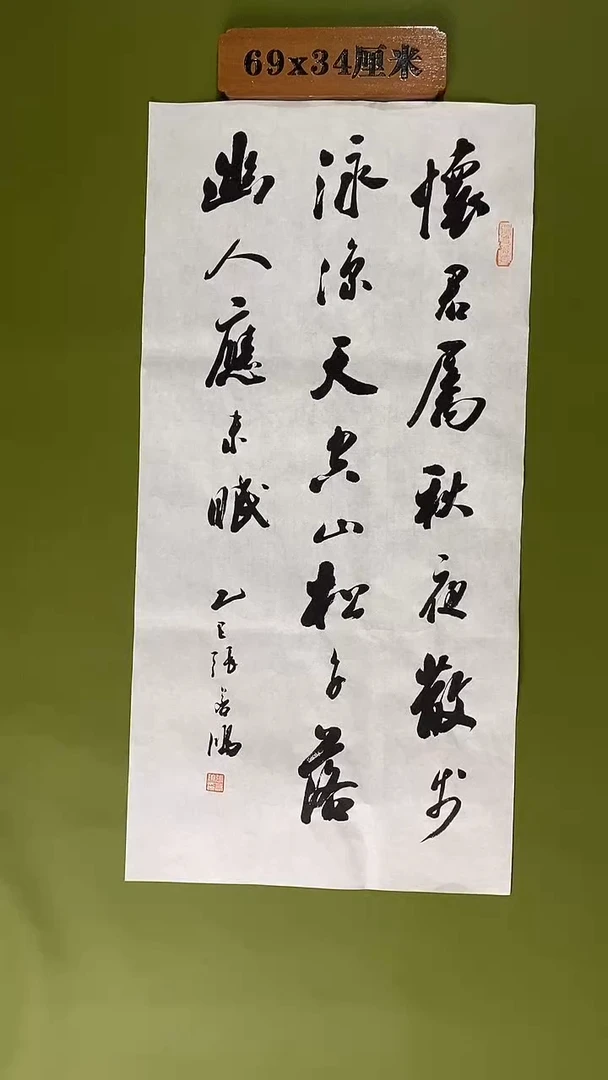 69x34厘米
懷君屬秋夜散步
泳涼天空山松子落
幽人應未眠
乙巳張善鴻